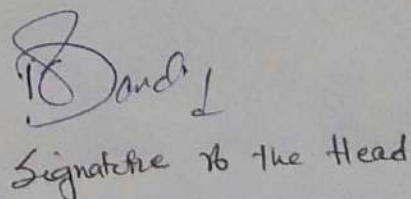 Signature of the Head